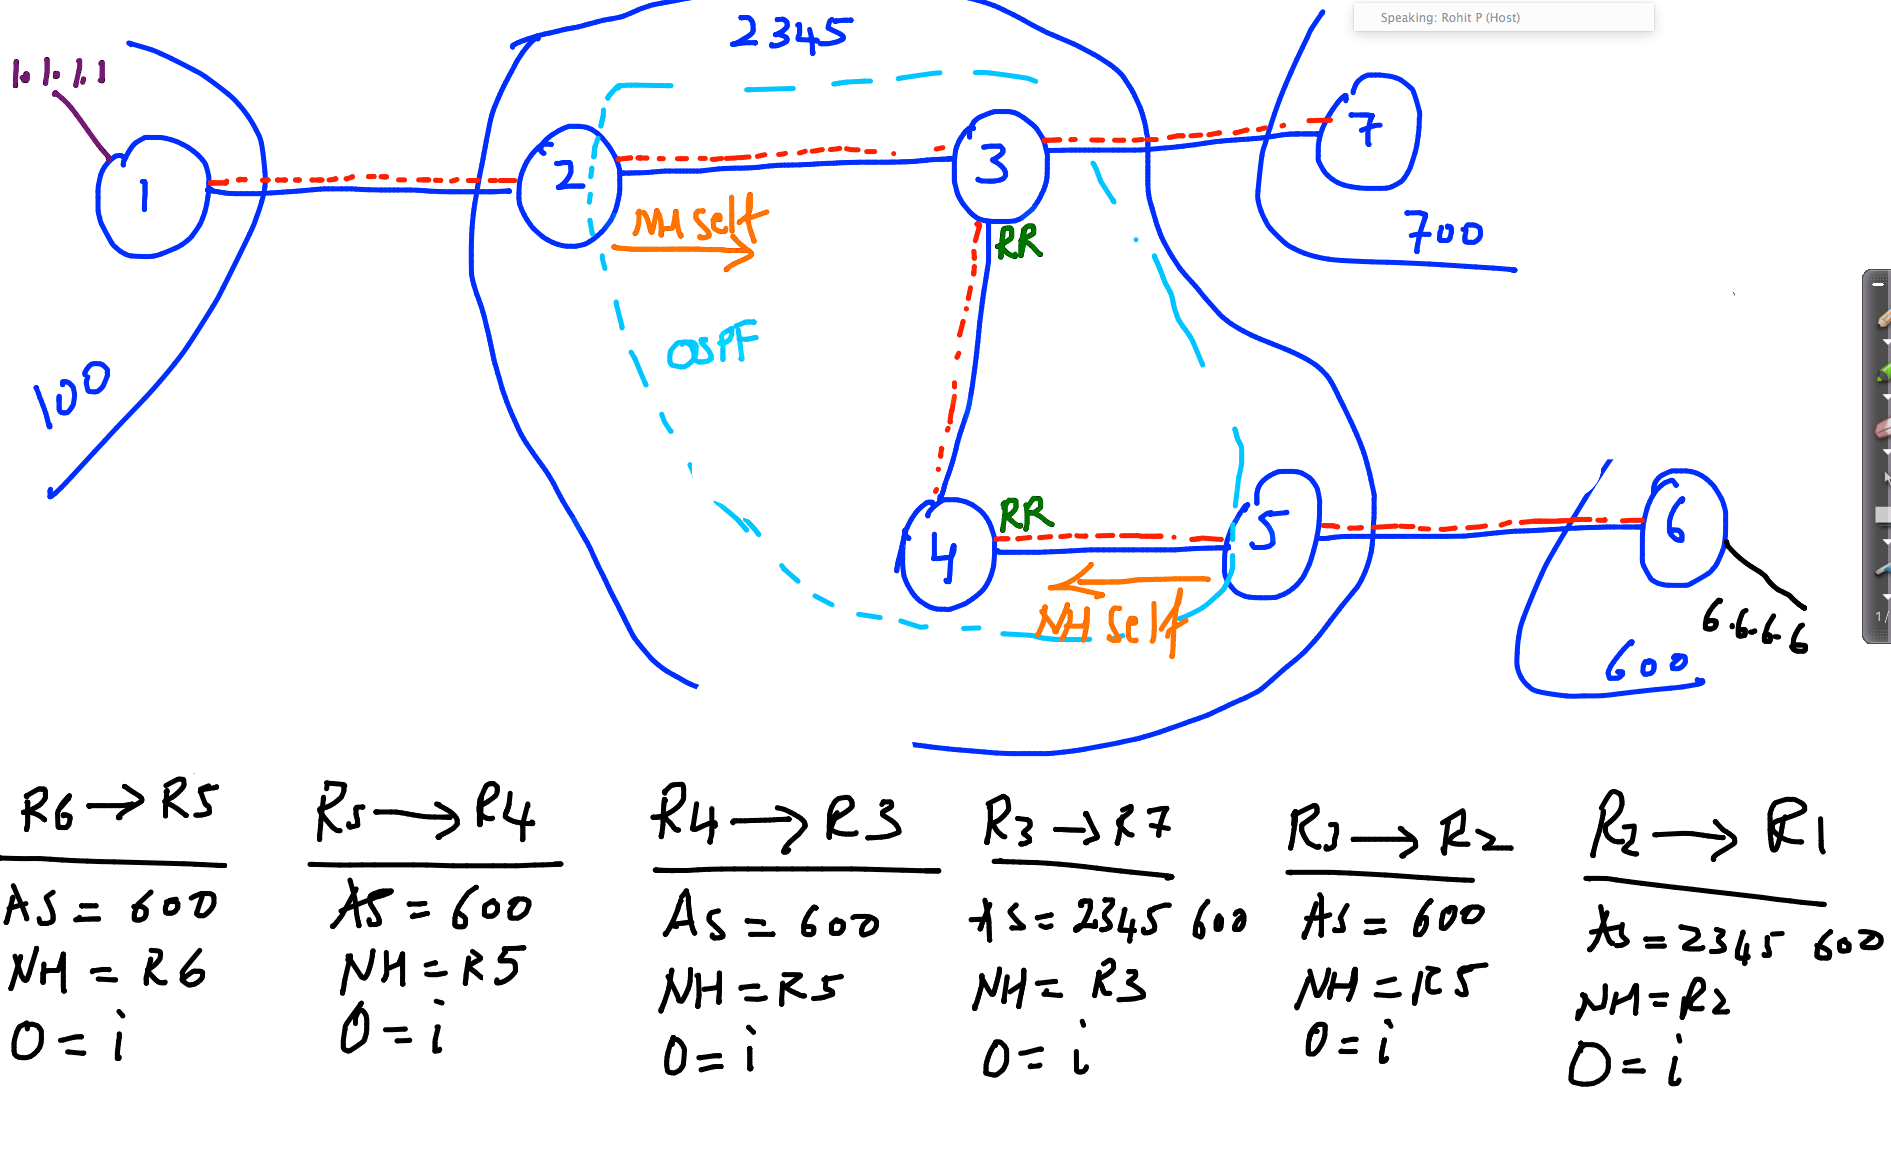 Speaking: Rohit P (Host)
2345
1.1.1.1
1
2
3
7
NH self
RR
700
OSPF
100
RR
4
5
6
NH self
6.6.6.6
600
1/
R6 → R5
AS = 600
NH = R6
O = i
R5 → R4
AS = 600
NH = R5
O = i
R4 → R3
AS = 600
NH = R5
O = i
R3 → R7
AS = 2345 600
NH = R3
O = i
R3 → R2
AS = 600
NH = R5
O = i
R2 → R1
AS = 2345 600
NH = R2
O = i